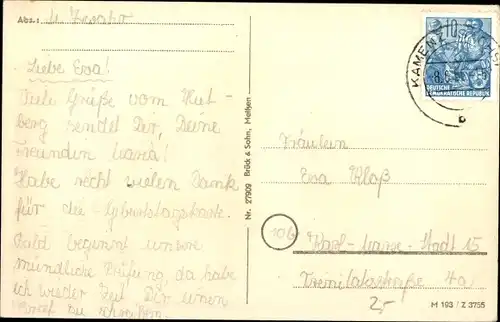 Abs.:
Liebe Eva!
Viele Grüße vom Hut-
berg sendet Dir, Deine
Freundin Maria!
Habe recht vielen Dank
für die Geburtstagskarte.
Bald beginnt unsere
mündliche Prüfung, da habe
ich wieder Zeit Dir einen
Brief zu schreiben.
Nr. 27909 Brück & Sohn, Meißen
10
DEUTSCHE
DEMOKRATISCHE REPUBLIK
KAMENZ
b
Fräulein
Eva Kloß
10b
Karl-Marx-Stadt 15
4a
25
M 193 / Z 3755